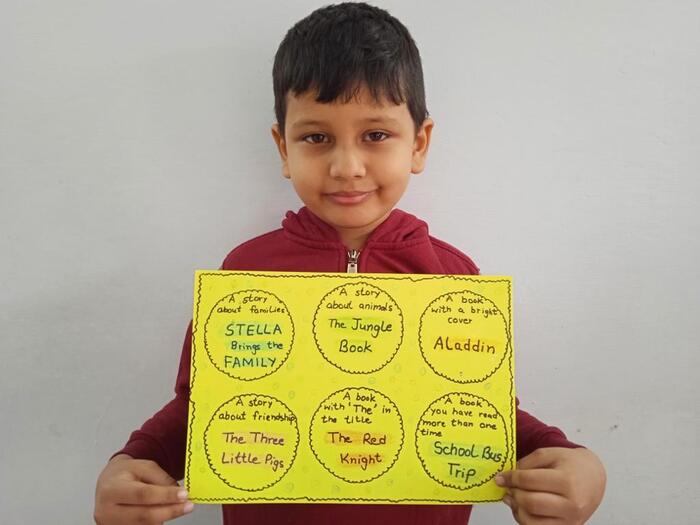 A story
about families
STELLA
Brings the
FAMILY
A story
about animals
The Jungle
Book
A book
with a bright
cover
ALaddin
A story
about friendship
The Three
Little Pigs
A book
with 'The' in
the title
The Red
Knight
A book
you have read
more than one
time
School Bus
Trip